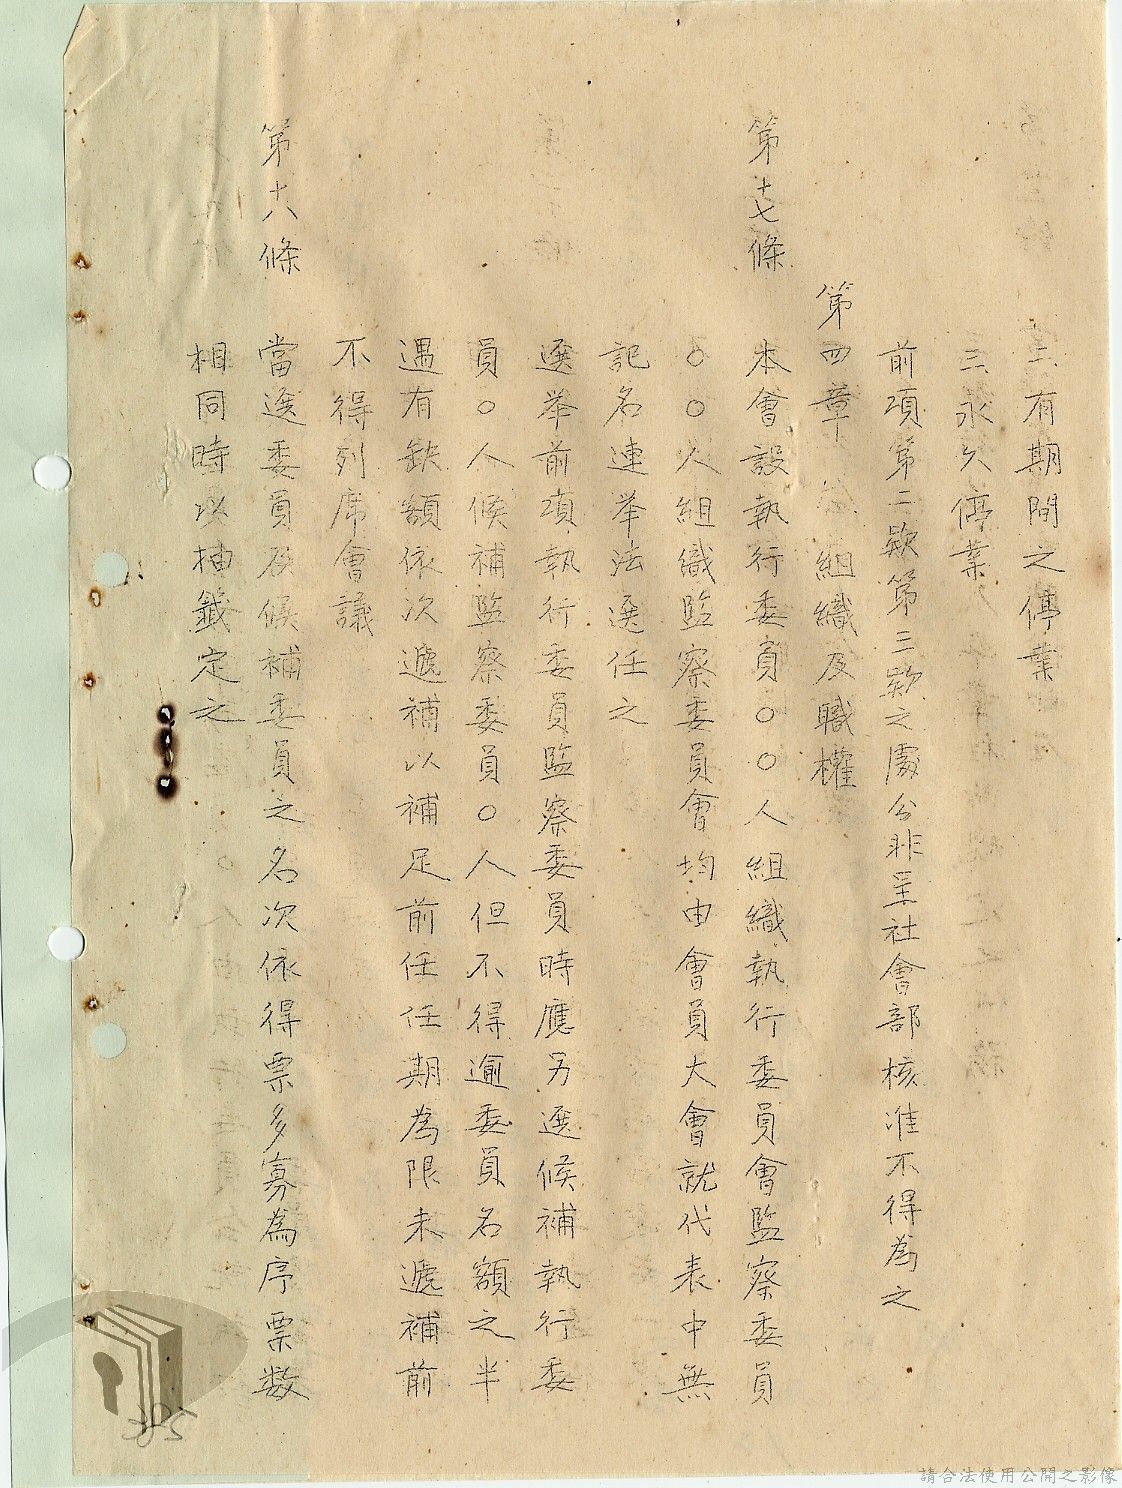 二、有期間之停業
三、永久停業
前項第二款第三款之處分非呈社會部核准不得為之
第四章 組織及職權
第十七條 本會設執行委員○○人組織執行委員會監察委員
○○人組織監察委員會均由會員大會就代表中無
記名連举法選任之
選举前項執行委員監察委員時應另選候補執行委
員○人候補監察委員○人但不得逾委員名額之半
遇有缺額依次遞補以補足前任任期為限未遞補前
不得列席會議
第十八條 當選委員及候補委員之名次依得票多寡為序票数
相同時以抽籤定之
385
請合法使用公開之影像